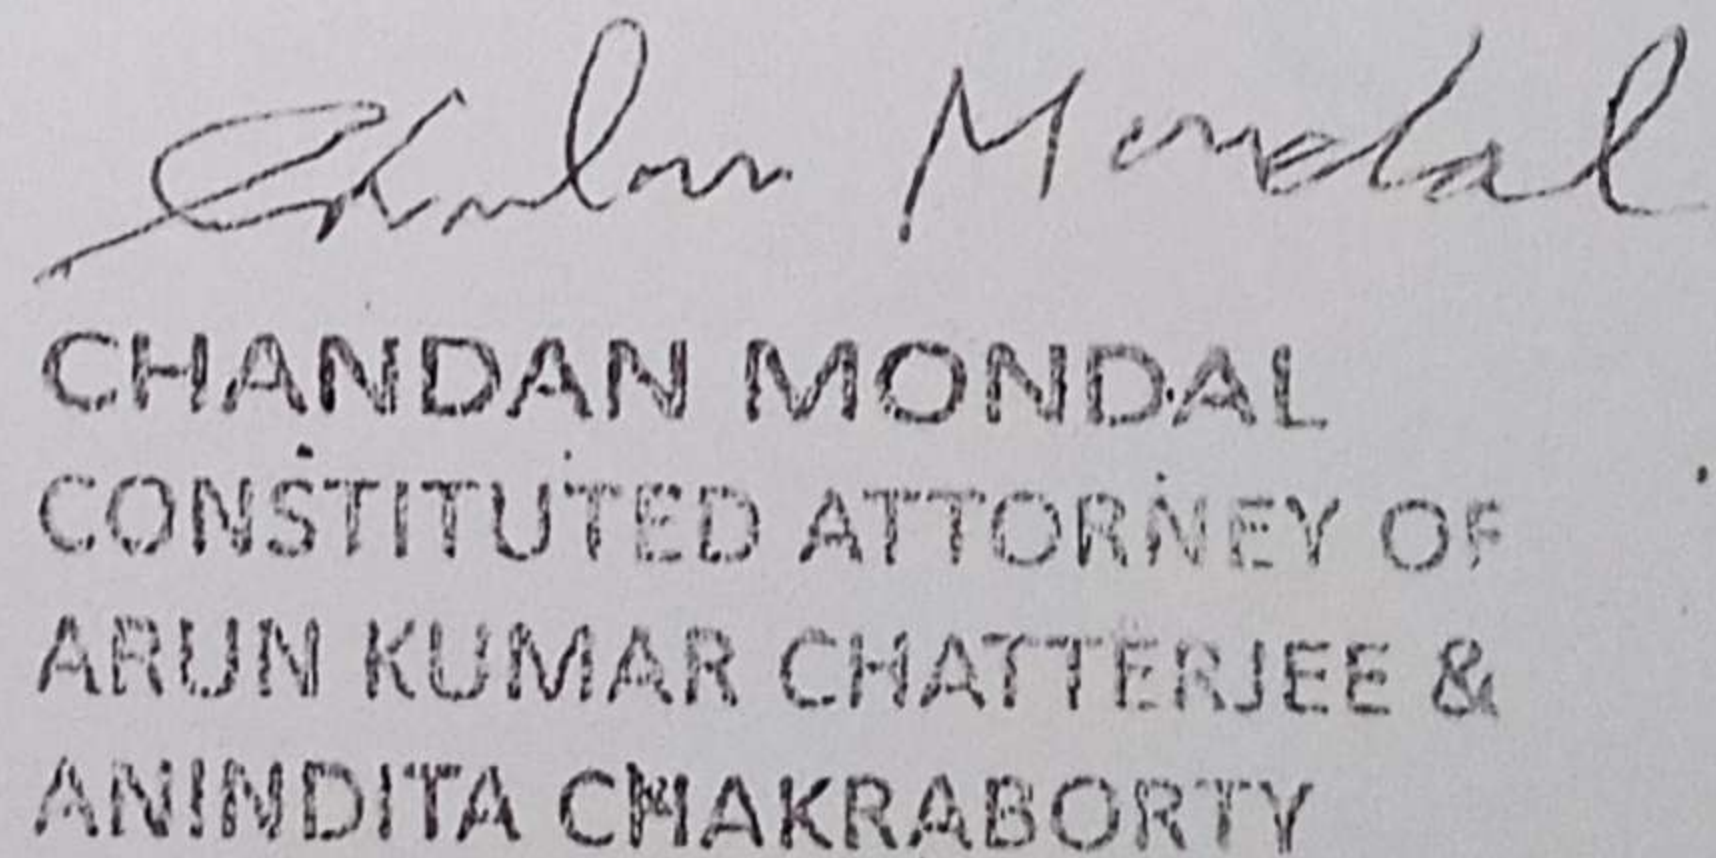 Chandan Mondal
CHANDAN MONDAL
CONSTITUTED ATTORNEY OF
ARUN KUMAR CHATTERJEE &
ANINDITA CHAKRABORTY